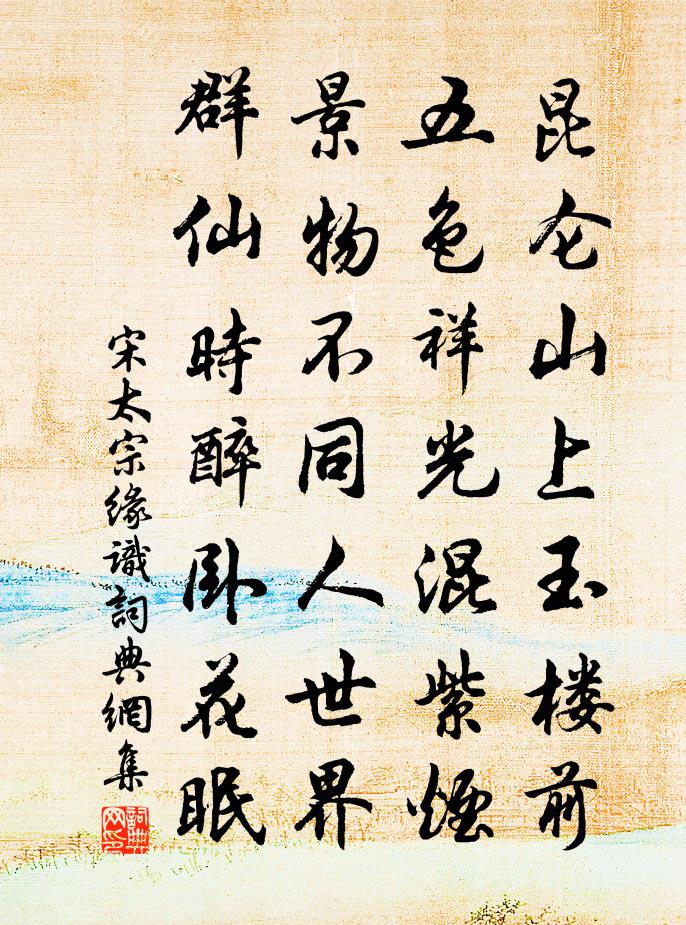 昆仑山上玉楼前
五色祥光混紫烟
景物不同人世界
群仙時醉卧花眠
宋太宗緣識詞典網集
詞典网印